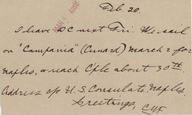 Feb. 20.
I leave DC next Fri. We sail
on "Campania" (Cunard) March 2 for
Naples, & reach C'ple about 30th
Address c/o U.S. Consulate Naples.
Greetings, CHF